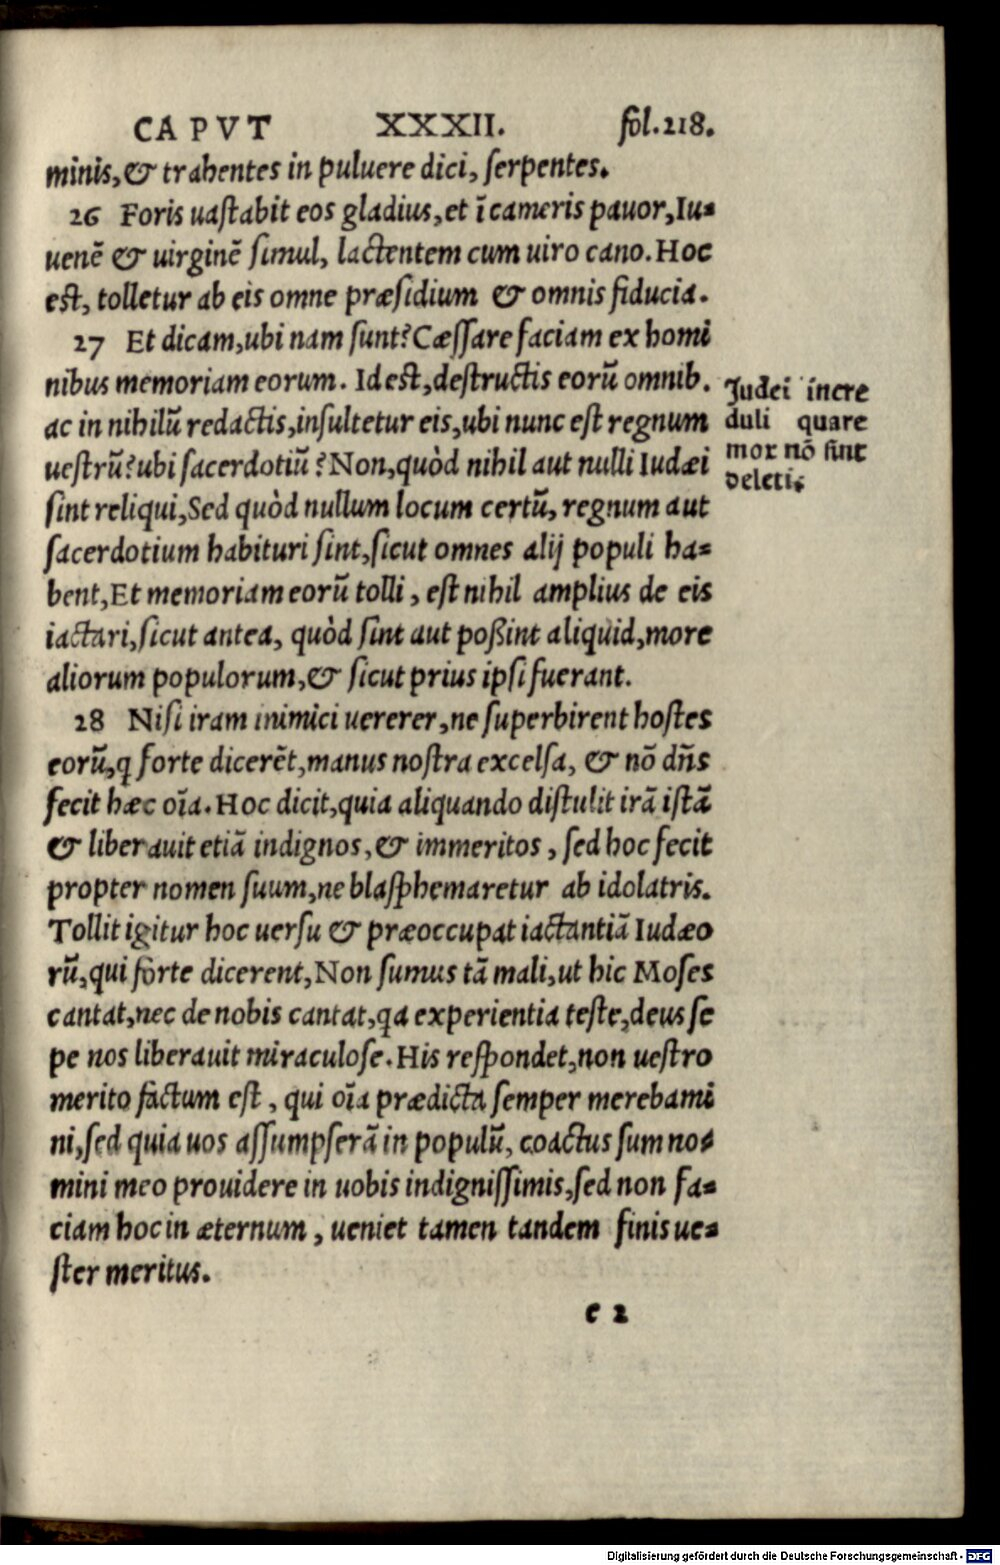 CAPVT XXXII. fol.218.
minis,& trahentes in puluere dici, ſerpentes.
26 Foris uaſtabit eos gladius,et ĩ cameris pauor,Iu⸗
uenẽ & uirginẽ ſimul, lactentem cum uiro cano.Hoc
est, tolletur ab eis omne præſidium & omnis fiducia.
27 Et dicam,ubi nam ſunt?Cæſſare faciam ex homi
nibus memoriam eorum. Id est,deſtructis eorũ omnib.
ac in nihilũ redactis,inſultetur eis,ubi nunc est regnum
ueſtrũ?ubi ſacerdotiũ?Non,quòd nihil aut nulli Iudæi
ſint reliqui,Sed quòd nullum locum certũ, regnum aut
ſacerdotium habituri ſint,ſicut omnes alij populi ha⸗
bent,Et memoriam eorũ tolli, est nihil amplius de eis
iactari,ſicut antea, quòd ſint aut poßint aliquid,more
aliorum populorum,& ſicut prius ipſi fuerant.
Iudei incre
duli quare
mox nõ ſint
deleti.
28 Niſi iram inimici uererer,ne ſuperbirent hoſtes
eorũ,q forte dicerẽt,manus noſtra excelſa, & nõ dñs
fecit hæc oĩa.Hoc dicit,quia aliquando diſtulit irã iſtã
& liberauit etiã indignos,& immeritos, ſed hoc fecit
propter nomen ſuum,ne blaſphemaretur ab idolatris.
Tollit igitur hoc uerſu & præoccupat iactantiã Iudæo
rũ,qui forte dicerent,Non ſumus tã mali,ut hic Moſes
cantat,nec de nobis cantat,qa experientia teſte,deus ſe
pe nos liberauit miraculoſe.His reſpondet,non ueſtro
merito factum est, qui oĩa prædicta ſemper merebami
ni,ſed quia uos aſſumpſerã in populũ, coactus ſum no⸗
mini meo prouidere in uobis indigniſſimis,ſed non fa⸗
ciam hoc in æternum, ueniet tamen tandem finis ue⸗
ſter meritus.
e 2
Digitalisierung gefördert durch die Deutsche Forschungsgemeinschaft - DFG